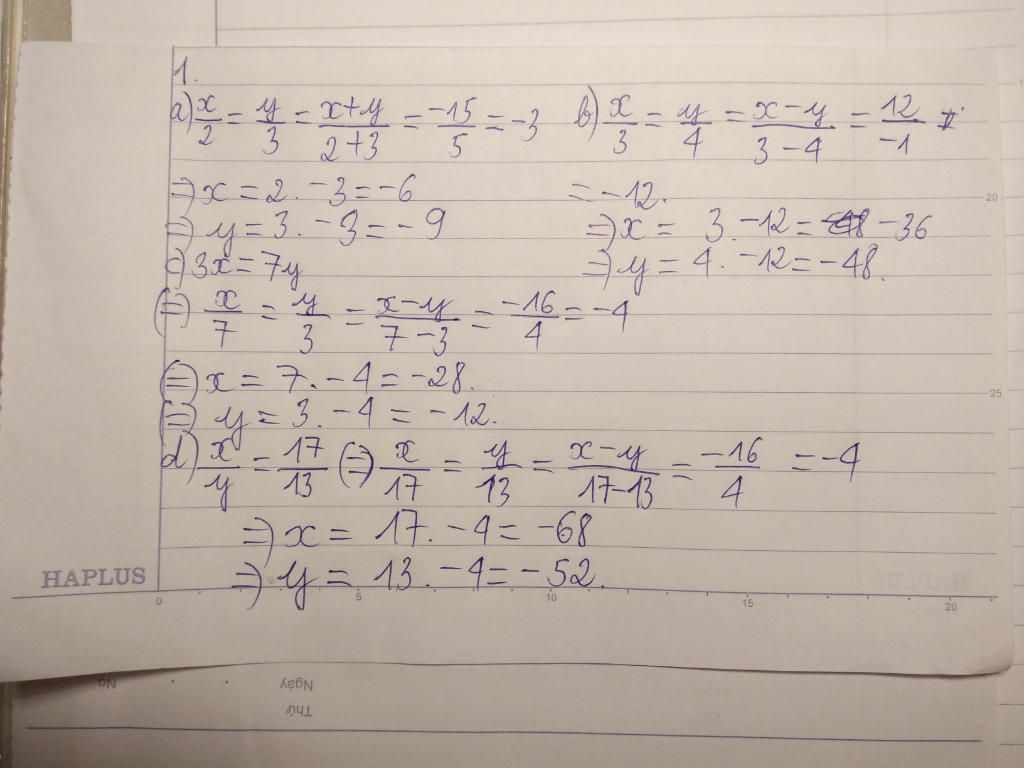 1.
a) x/2 = y/3 = x+y/2+3 = -15/5 = -3
⇒ x = 2. -3 = -6
⇒ y = 3. -3 = -9
b) x/3 = y/4 = x-y/3-4 = 12/-1
= -12.
⇒ x = 3. -12 = -36
⇒ y = 4. -12 = -48.
c) 3x = 7y
(⇒) x/7 = y/3 = x-y/7-3 = -16/4 = -4
(⇒) x = 7. -4 = -28.
(⇒) y = 3. -4 = -12.
d) x/y = 17/13 (⇒) x/17 = y/13 = x-y/17-13 = -16/4 = -4
⇒ x = 17. -4 = -68
⇒ y = 13. -4 = -52.
HAPLUS
0 5 10 15 20
20
25
No.
Ngày
Thứ